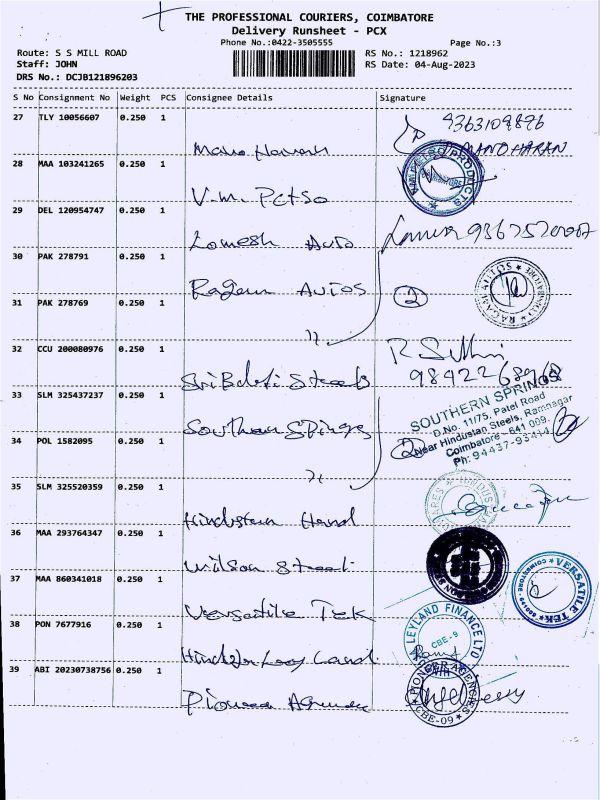 THE PROFESSIONAL COURIERS, COIMBATORE
Delivery Runsheet - PCX
Phone No.:0422-3505555
Page No.:3
Route: S S MILL ROAD
RS No.: 1218962
Staff: JOHN
RS Date: 04-Aug-2023
DRS No.: DCJB121896203
S No Consignment No Weight PCS Consignee Details Signature
27 TLY 10056607 0.250 1
MANOHARAN
28 MAA 103241265 0.250 1
V.M. Petso
29 DEL 120954747 0.250 1
Lomesh Auto
30 PAK 278791 0.250 1
Ragam Autos 2 RAGAM AUTOS
31 PAK 278769 0.250 1
32 CCU 200080976 0.250 1
Sri Balaji Steels
33 SLM 325437237 0.250 1
Southern Springs
SOUTHERN SPRINGS
D.No. 11/75, Patel Road
Near Hindustan Steels, Ramnagar
Coimbatore - 641 009.
34 POL 1582095 0.250 1
35 SLM 325520359 0.250 1
Hindustan Hard
36 MAA 293764347 0.250 1
Wilson Steel
37 MAA 860341018 0.250 1
Versatile Tek
VERSATILE TEK
38 PON 7677916 0.250 1
LEYLAND FINANCE LTD
CBE - 9
39 ABI 20230738756 0.250 1
Pioneer Agencies
PIONEER AGENCIES
CBE-09